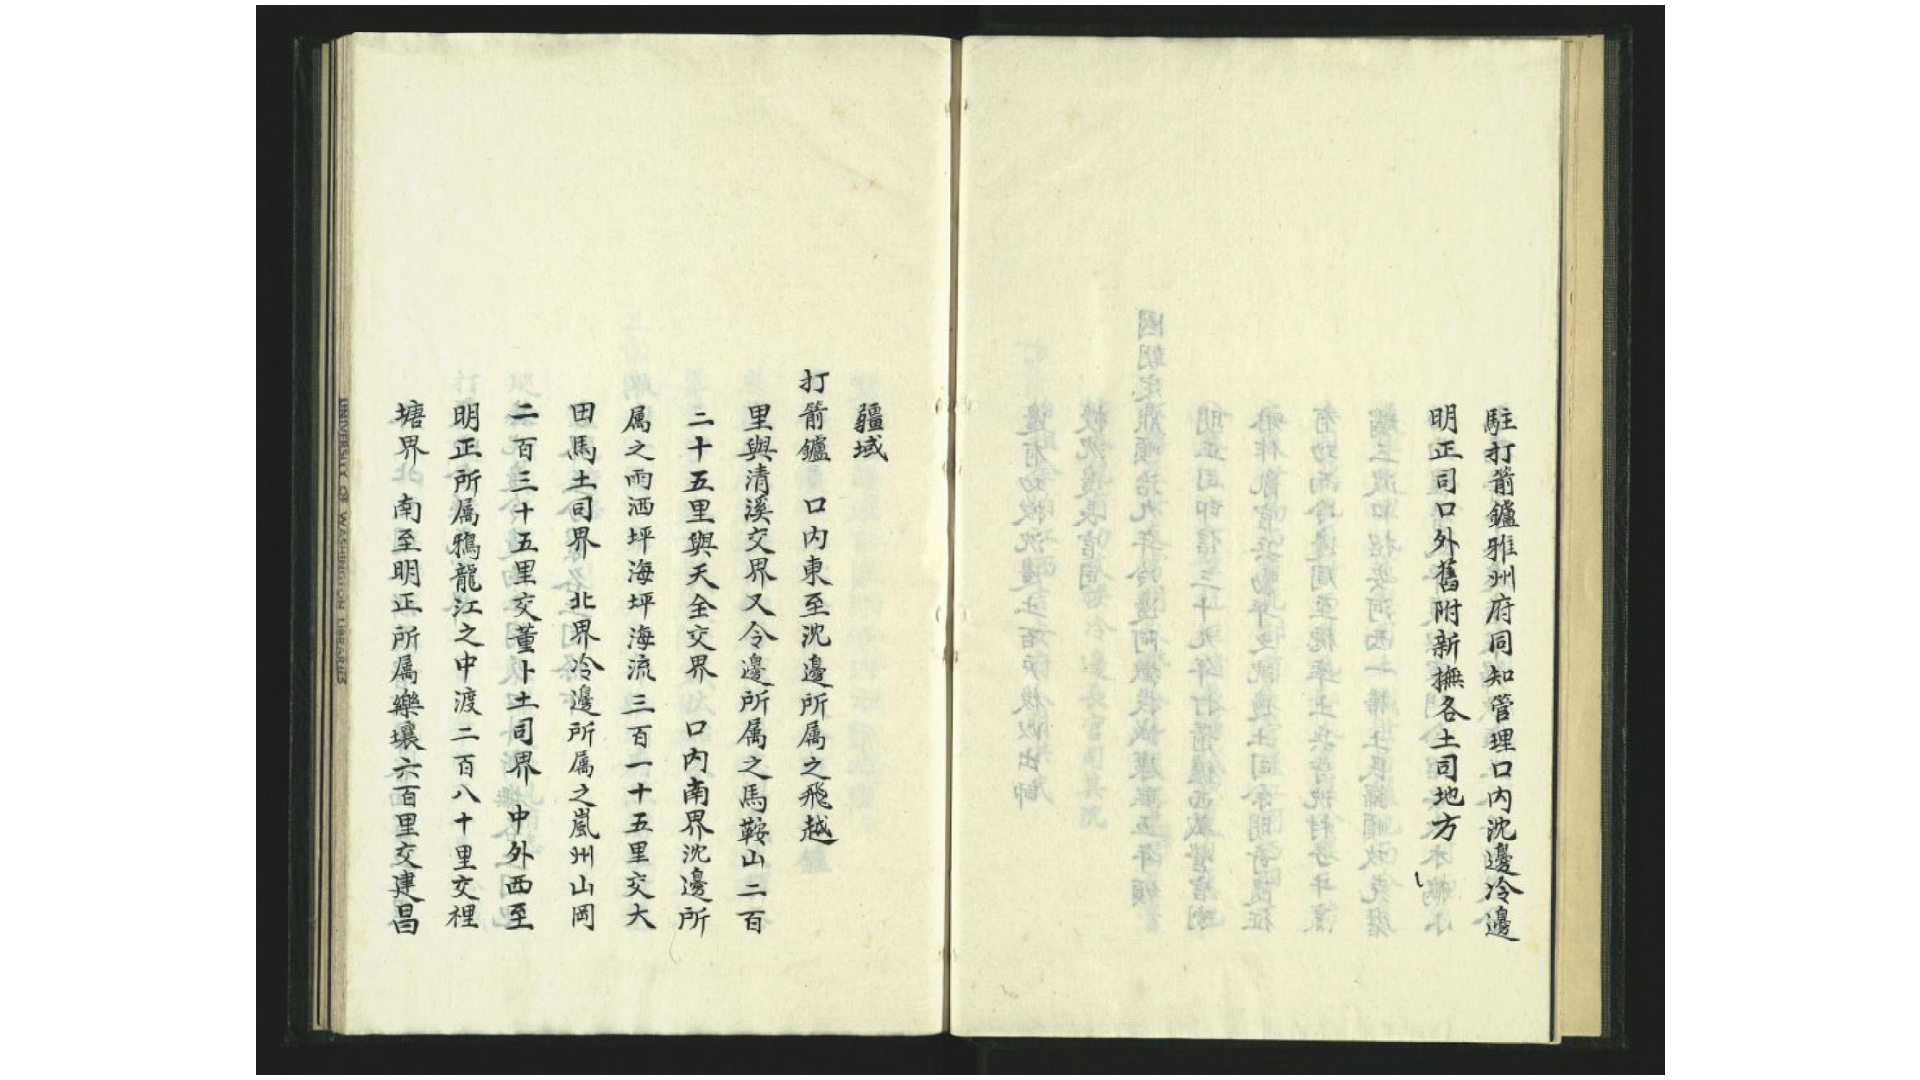 駐打箭鑪雅州府同知管理口内沈邊冷邊
明正司口外舊附新撫各土司地方
疆域
打箭鑪 口内東至沈邊所属之飛越
里與清溪交界又令邊所属之馬鞍山二百
二十五里與天全交界 口内南界沈邊所
属之雨洒坪海坪海流三百一十五里交大
田馬土司界 北界冷邊所属之嵐州山岡
二百三十五里交董卜土司界 中外西至
明正所属鴉龍江之中渡二百八十里交裡
塘界 南至明正所属樂壤六百里交建昌
UNIVERSITY OF WASHINGTON LIBRARIES